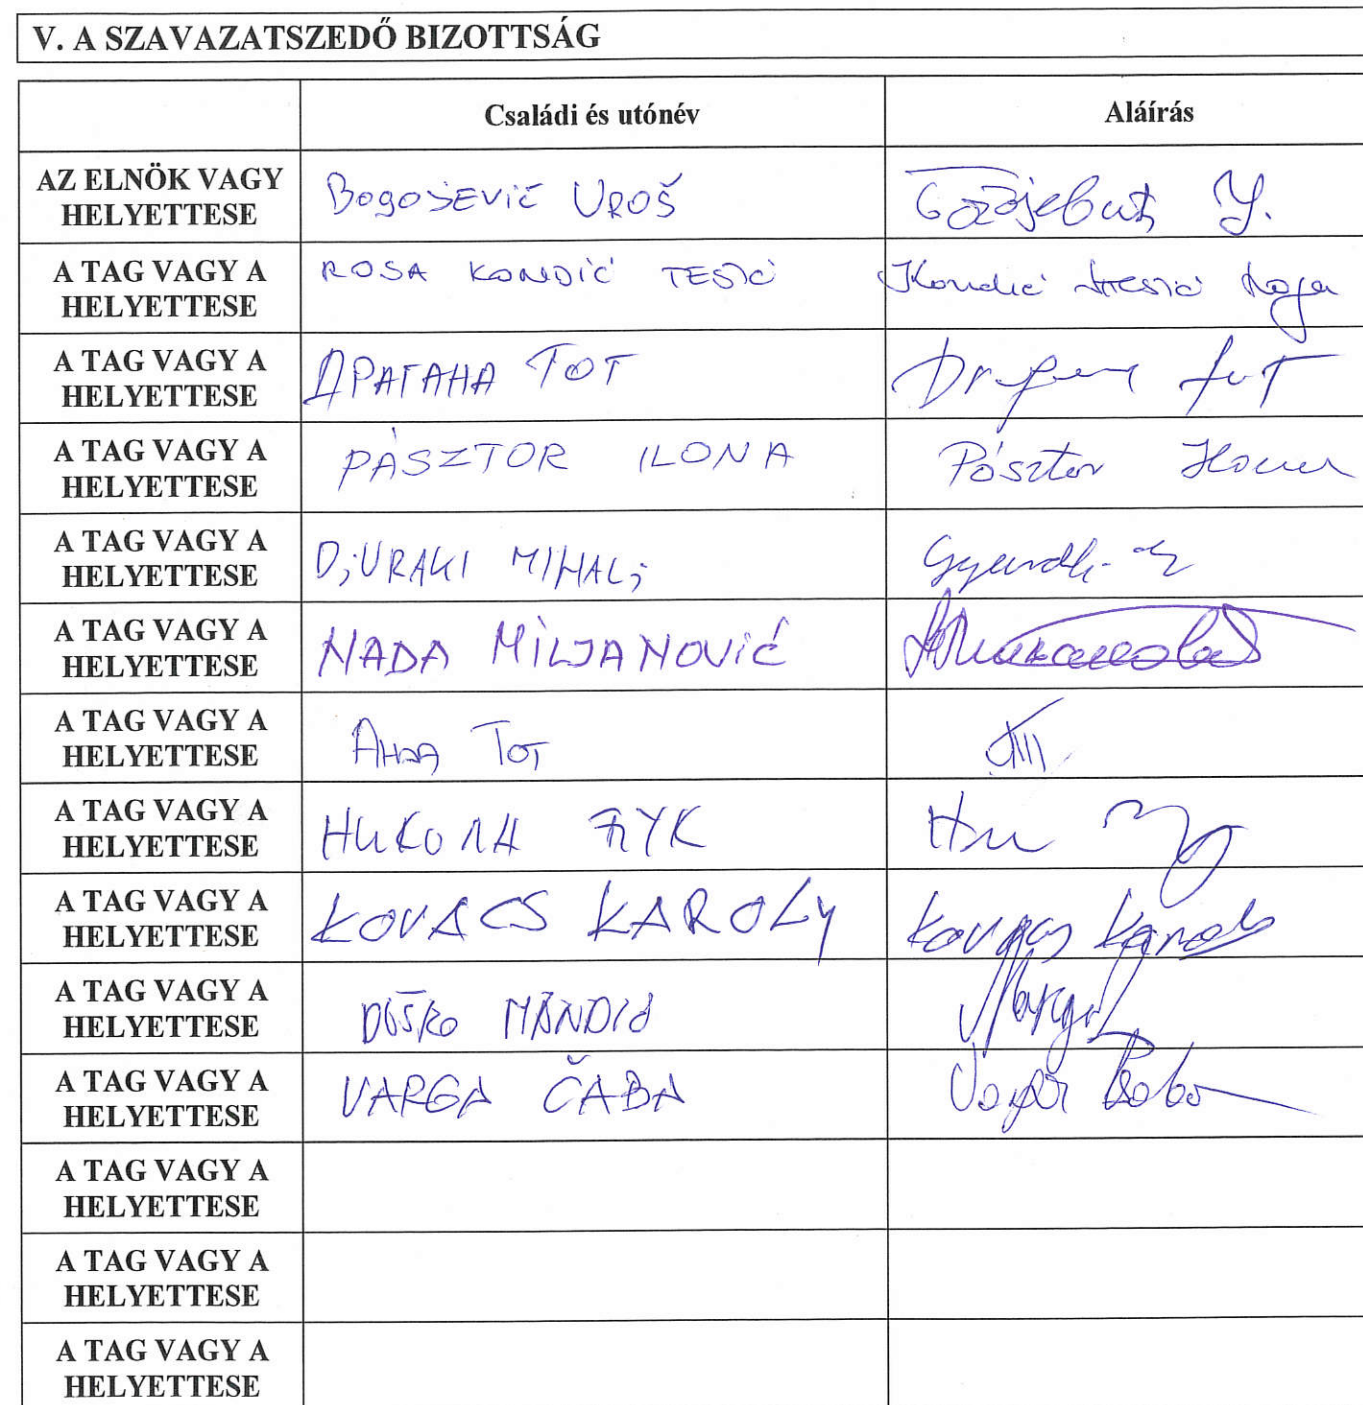 V. A SZAVAZATSZEDŐ BIZOTTSÁG
Családi és utónév Aláírás
AZ ELNÖK VAGY
HELYETTESE
Bogojević Uroš
A TAG VAGY A
HELYETTESE
ROSA KONDIĆ TESIĆ Kondić Tesić Rosa
A TAG VAGY A
HELYETTESE
ДРАГАНА ТОТ
A TAG VAGY A
HELYETTESE
PÁSZTOR ILONA Pásztor Ilona
A TAG VAGY A
HELYETTESE
DjURAKI MIHALj
A TAG VAGY A
HELYETTESE
NADA MILJANOVIĆ
A TAG VAGY A
HELYETTESE
Анна Тот
A TAG VAGY A
HELYETTESE
НИКОЛА
A TAG VAGY A
HELYETTESE
KOVACS KAROLY Kovacs Karoly
A TAG VAGY A
HELYETTESE
DUŠKO MANDIĆ
A TAG VAGY A
HELYETTESE
VARGA ČABA Varga Csaba
A TAG VAGY A
HELYETTESE
A TAG VAGY A
HELYETTESE
A TAG VAGY A
HELYETTESE